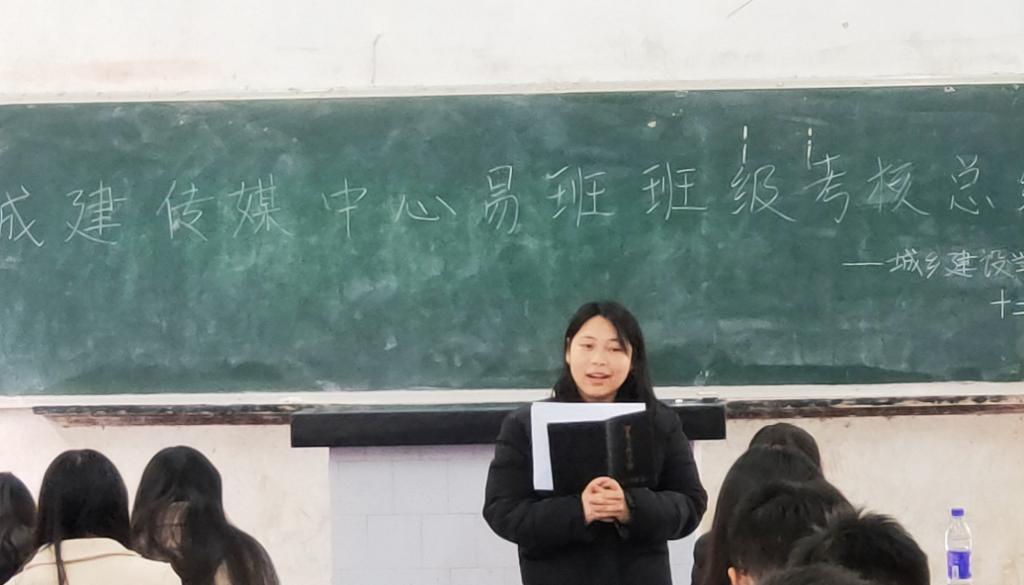 城建传媒中心易班班级考核总
——城乡建设学
十二